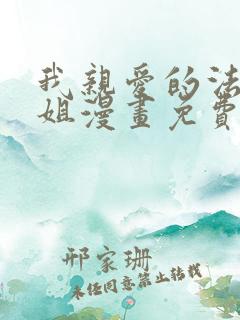 我親愛的法
姐漫畫免費
邢家珊
未任同意禁止转载